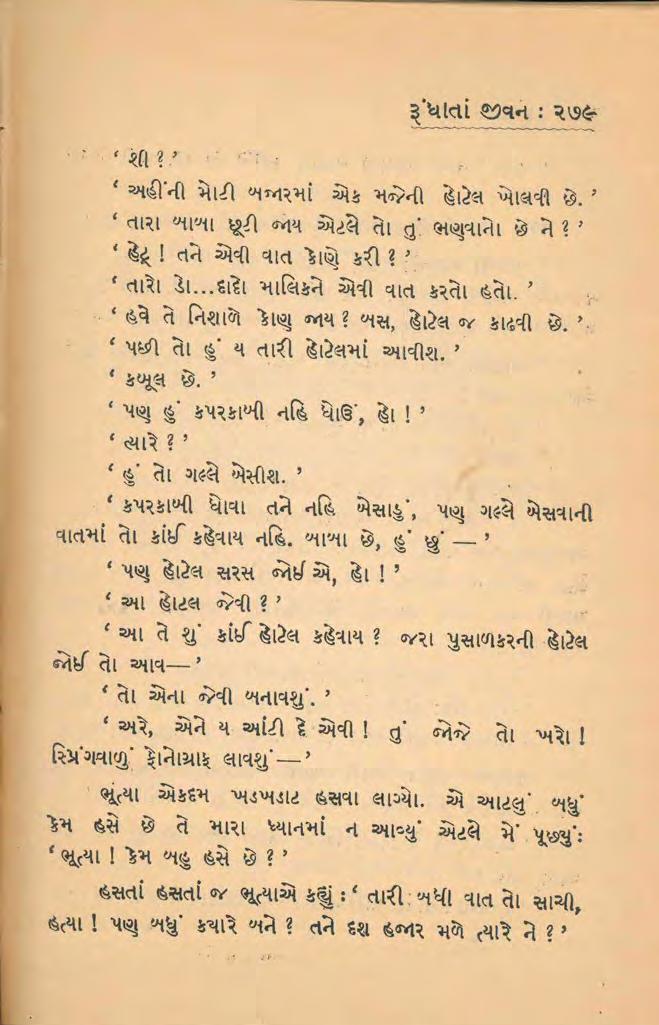 રૂંધાતાં જીવન : ૨૭૯
‘ શી ? ’
‘ અહીંની મોટી બજારમાં એક મજેની હોટેલ ખોલવી છે. ’
‘ તારા બાબા છૂટી જાય એટલે તો તું ભણવાનો છે ને ? ’
‘ હેટ્ ! તને એવી વાત કોણે કરી ? ’
‘ તારો ડો...દાદો માલિકને એવી વાત કરતો હતો. ’
‘ હવે તે નિશાળે કોણ જાય ? બસ, હોટેલ જ કાઢવી છે. ’
‘ પછી તો હું ય તારી હોટેલમાં આવીશ. ’
‘ કબૂલ છે. ’
‘ પણ હું કપરકાબી નહિ ધોઉં, હો ! ’
‘ ત્યારે ? ’
‘ હું તો ગલ્લે બેસીશ. ’
‘ કપરકાબી ધોવા તને નહિ બેસાડું, પણ ગલ્લે બેસવાની
વાતમાં તો કાંઈ કહેવાય નહિ. બાબા છે, હું છું — ’
‘ પણ હોટેલ સરસ જોઈએ, હો ! ’
‘ આ હોટલ જેવી ? ’
‘ આ તે શું કાંઈ હોટેલ કહેવાય ? જરા પુસાળકરની હોટેલ
જોઈ તો આવ— ’
‘ તો એના જેવી બનાવશું. ’
‘ અરે, એને ય આંટી દે એવી ! તું જોજે તો ખરો !
સ્પ્રિંગવાળું ફોનોગ્રાફ લાવશું — ’
ભૂત્યા એકદમ ખડખડાટ હસવા લાગ્યો. એ આટલું બધું
કેમ હસે છે તે મારા ધ્યાનમાં ન આવ્યું એટલે મેં પૂછ્યું :
‘ ભૂત્યા ! કેમ બહુ હસે છે ? ’
હસતાં હસતાં જ ભૂત્યાએ કહ્યું : ‘ તારી બધી વાત તો સાચી,
હત્યા ! પણ બધું ક્યારે બને ? તને દશ હજાર મળે ત્યારે ને ? ’